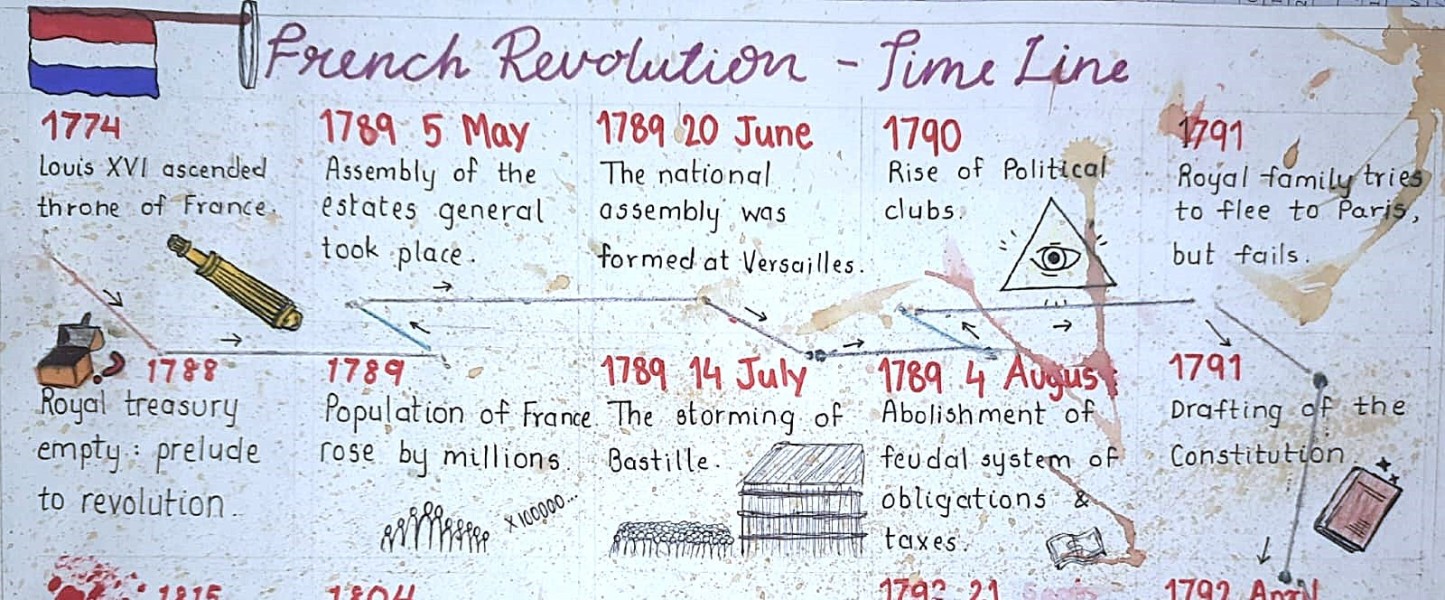 French Revolution - Time Line
1774
Louis XVI ascended
throne of France.
1789 5 May
Assembly of the
estates general
took place.
1789 20 June
The national
assembly was
formed at Versailles.
1790
Rise of Political
clubs.
1791
Royal family tries
to flee to Paris,
but fails.
1788
Royal treasury
empty : prelude
to revolution.
1789
Population of France
rose by millions.
x100000...
1789 14 July
The storming of
Bastille.
1789 4 August
Abolishment of
feudal system of
obligations &
taxes.
1791
Drafting of the
Constitution.
1815
1804
1792 21
1792 April